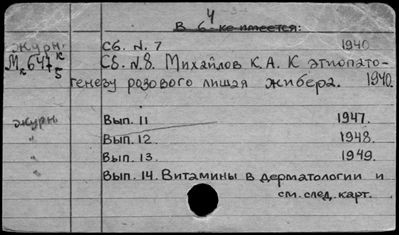 4
В б-ке имеется:
журн. Сб. N. 7 1940
М2647 К/5 Сб. N.8. Михайлов К.А. К этиопато-
генезу розового лишая жибера. 1940.
журн. Вып. 11 1947.
" Вып. 12. 1948.
" Вып. 13. 1949.
" Вып. 14. Витамины в дерматологии и
см. след. карт.